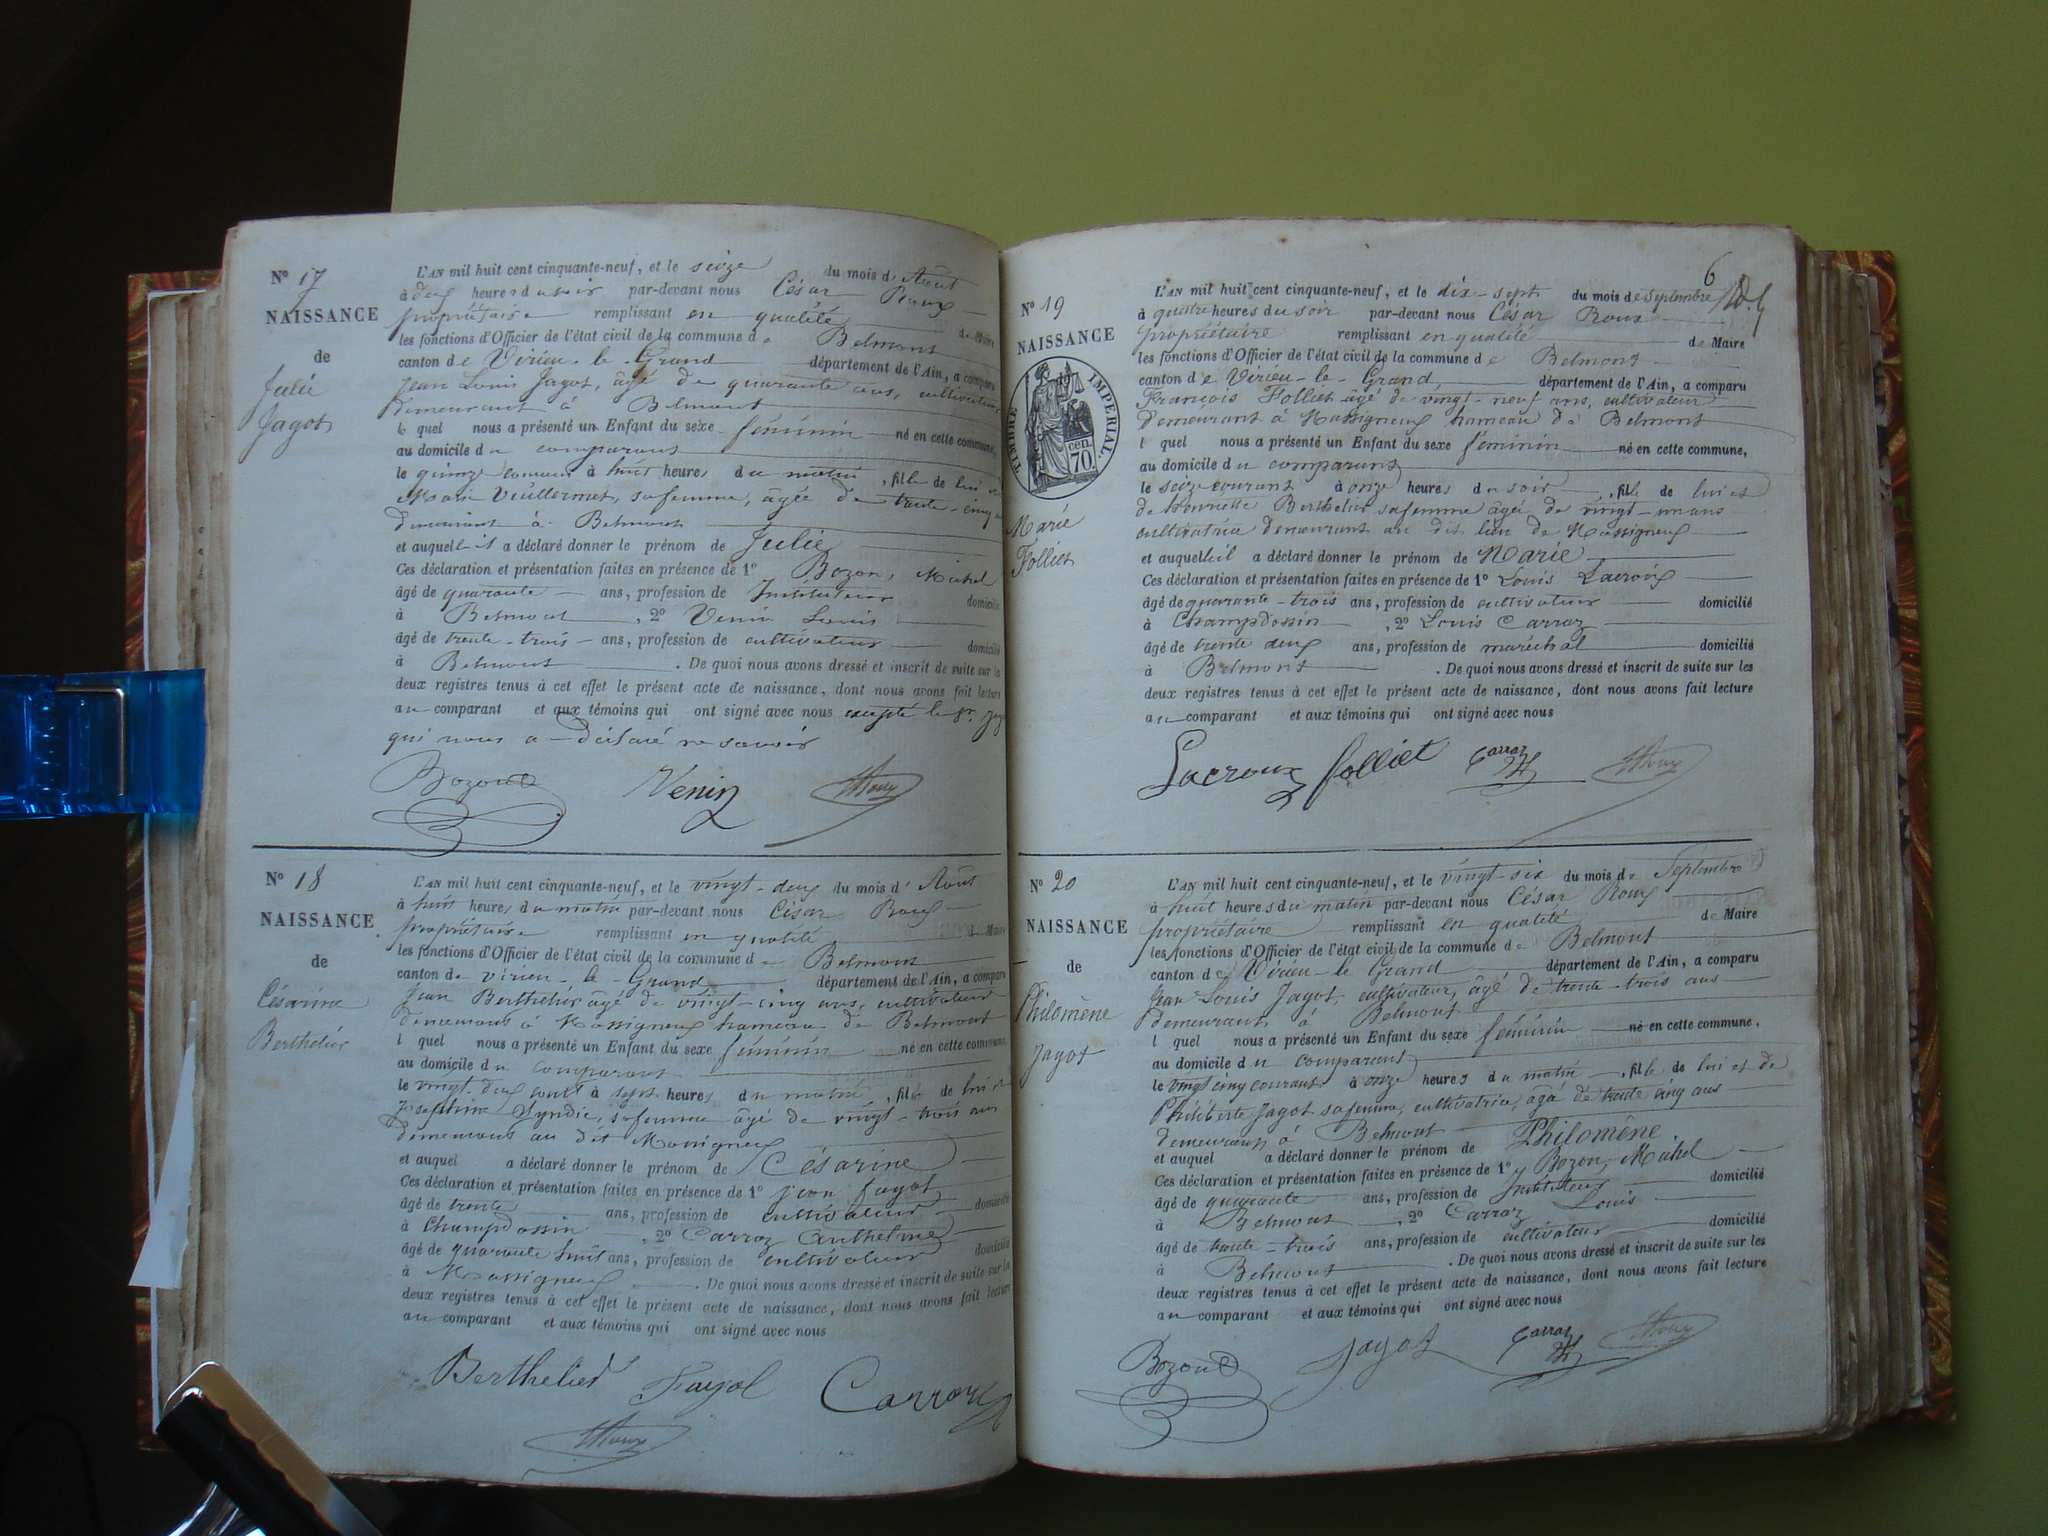 N° 17
NAISSANCE
de
Julie
Jagot
L'AN mil huit cent cinquante-neuf, et le seize du mois d'Août
à deux heures du soir par-devant nous César Roux
propriétaire remplissant en qualité de Maire
les fonctions d'Officier de l'état civil de la commune de Belmont
canton de Virieu-le-Grand département de l'Ain, a comparu
Jean Louis Jagot, âgé de quarante ans, cultivateur
demeurant à Belmont
lequel nous a présenté un Enfant du sexe féminin né en cette commune,
au domicile du comparant
le quinze courant à huit heures du matin, fille de lui et
Marie Vuillermet, sa femme, âgée de trente-cinq ans
demeurant à Belmont
et auquel il a déclaré donner le prénom de Julie
Ces déclaration et présentation faites en présence de 1° Bozon, Michel
âgé de quarante ans, profession de Instituteur domicilié
à Belmont, 2° Venin Louis
âgé de trente-trois ans, profession de cultivateur domicilié
à Belmont. De quoi nous avons dressé et inscrit de suite sur les
deux registres tenus à cet effet le présent acte de naissance, dont nous avons fait lecture
au comparant et aux témoins qui ont signé avec nous excepté le Sr. Jag
qui nous a déclaré ne savoir
Bozon Venin Roux
N° 18
NAISSANCE
de
Césarine
Berthelier
L'AN mil huit cent cinquante-neuf, et le vingt-deux du mois d'Août
à huit heures du matin par-devant nous César Roux
propriétaire remplissant en qualité de Maire
les fonctions d'Officier de l'état civil de la commune de Belmont
canton de virieu-le-Grand département de l'Ain, a comparu
Jean Berthelier âgé de vingt-cinq ans, cultivateur
demeurant à Massigneux hameau de Belmont
lequel nous a présenté un Enfant du sexe féminin né en cette commune,
au domicile du comparant
le vingt deux août à sept heures du matin, fille de lui et
Josephine Syndic, sa femme âgé de vingt-trois ans
demeurant au dit Massigneux
et auquel a déclaré donner le prénom de Césarine
Ces déclaration et présentation faites en présence de 1° jean fayot
âgé de trente ans, profession de cultivateur domicilié
à Champdossin, 2° Carroz Anthelme
âgé de quarante huit ans, profession de cultivateur domicilié
à Massigneux. De quoi nous avons dressé et inscrit de suite sur les
deux registres tenus à cet effet le présent acte de naissance, dont nous avons fait lecture
au comparant et aux témoins qui ont signé avec nous
Berthelier Fayol Carroz
Roux
6
N° 19
NAISSANCE
TIMBRE IMPÉRIAL.
70 cen.
Marie
Folliet
L'AN mil huit cent cinquante-neuf, et le dix-sept du mois de Septembre
à quatre heures du soir par-devant nous César Roux
propriétaire remplissant en qualité de Maire
les fonctions d'Officier de l'état civil de la commune de Belmont
canton de Virieu-le-Grand, département de l'Ain, a comparu
François Folliet âgé de vingt-neuf ans, cultivateur
demeurant à Massigneux hameau de Belmont
lequel nous a présenté un Enfant du sexe féminin né en cette commune,
au domicile du comparant
le seize courant à onze heures du soir, fille de lui et
de henriette Berthelier sa femme âgée de vingt-un ans
cultivatrice demeurant au dit lieu de Massigneux
et auquel il a déclaré donner le prénom de Marie
Ces déclaration et présentation faites en présence de 1° Louis Lacroix
âgé de quarante-trois ans, profession de cultivateur domicilié
à Champdossin, 2° Louis Carraz
âgé de trente deux ans, profession de maréchal domicilié
à Belmont. De quoi nous avons dressé et inscrit de suite sur les
deux registres tenus à cet effet le présent acte de naissance, dont nous avons fait lecture
au comparant et aux témoins qui ont signé avec nous
Lacroux folliet Carraz Roux
N° 20
NAISSANCE
de
Philomène
Jagot
L'AN mil huit cent cinquante-neuf, et le vingt-six du mois de Septembre
à huit heures du matin par-devant nous César Roux
propriétaire remplissant en qualité de Maire
les fonctions d'Officier de l'état civil de la commune de Belmont
canton de Virieu-le Grand département de l'Ain, a comparu
Jean Louis Jagot, cultivateur, âgé de trente-trois ans
demeurant à Belmont
lequel nous a présenté un Enfant du sexe féminin né en cette commune,
au domicile du comparant
le vingt cinq courant à onze heures du matin, fille de lui et de
Philiberte Jagot sa femme, cultivatrice, âgé de trente cinq ans
demeurant à Belmont
et auquel a déclaré donner le prénom de Philomène
Ces déclaration et présentation faites en présence de 1° Bozon, Michel
âgé de quarante ans, profession de Instituteur domicilié
à Belmont, 2° Carraz Louis
âgé de trente-trois ans, profession de cultivateur domicilié
à Belmont. De quoi nous avons dressé et inscrit de suite sur les
deux registres tenus à cet effet le présent acte de naissance, dont nous avons fait lecture
au comparant et aux témoins qui ont signé avec nous
Bozon Jagot Carraz Roux